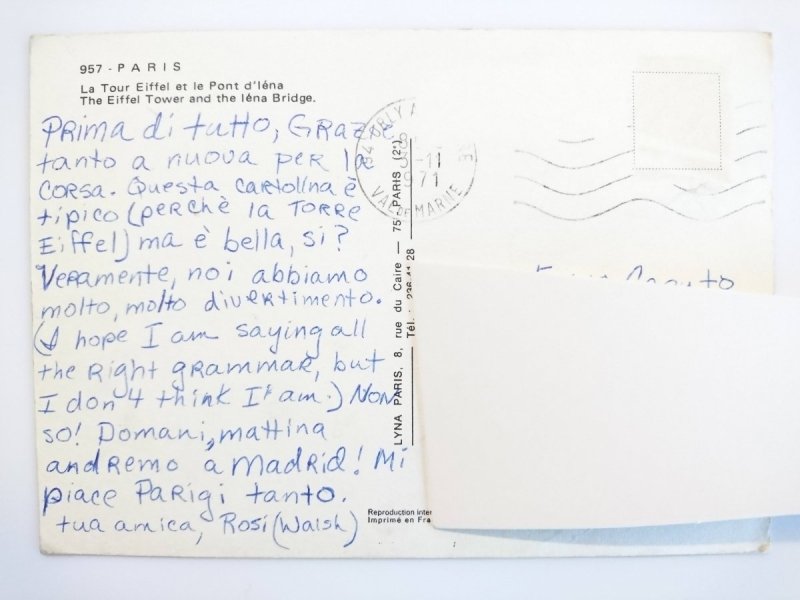 957 - PARIS
La Tour Eiffel et le Pont d'Iéna
The Eiffel Tower and the Iéna Bridge.
PRima di tutto, GRAZie
tanto a nuova per la
CORSA. Questa cartolina è
típico (perchè la TORRE
Eiffel) ma è bella, si?
Veramente, noi abbiamo
molto, molto divertimento.
(I hope I am saying all
the Right grammar, but
I don't think I am.) NON
so! Domani, mattina
andremo a Madrid! Mi
piace Parigi tanto.
tua amica, Rosi (Walsh)
94 ORLY A
-11
1971
VAL DE MARNE
LYNA PARIS, 8, rue du Caire — 75 PARIS (2e)
Tél. : 236 41 28
Reproduction inter
Imprimé en Fra